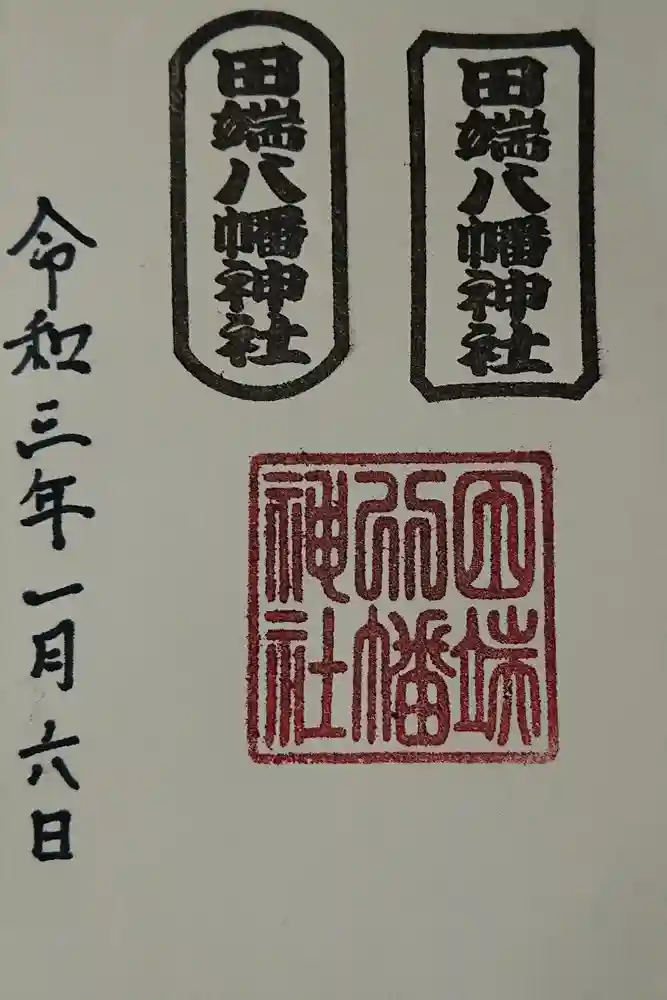 田端八幡神社
田端八幡神社
田端
八幡
神社
令和三年一月六日